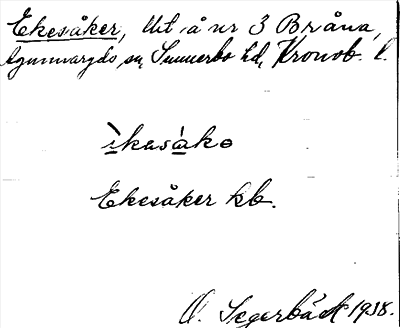 Ekesåker, lht å nr 3 Bråna,
Agunnaryds sn, Sunnerbo hd, Kronob. l.
ìkasàkə
Ekesåker kb.
O. Segerbäck 1938.